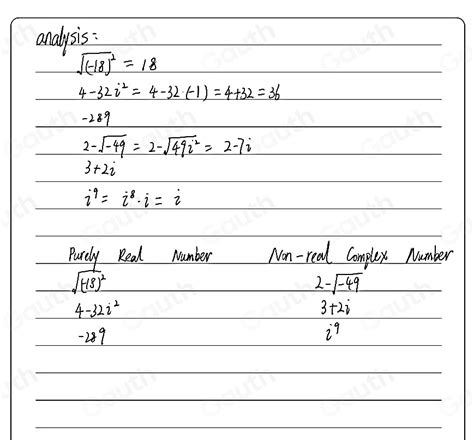 analysis:
√(-18)² = 18
4-32i² = 4-32·(-1) = 4+32 = 36
-289
2-√-49 = 2-√49i² = 2-7i
3+2i
i⁹ = i⁸·i = i
Purely Real Number Non-real Complex Number
√(-18)² 2-√-49
4-32i² 3+2i
-289 i⁹